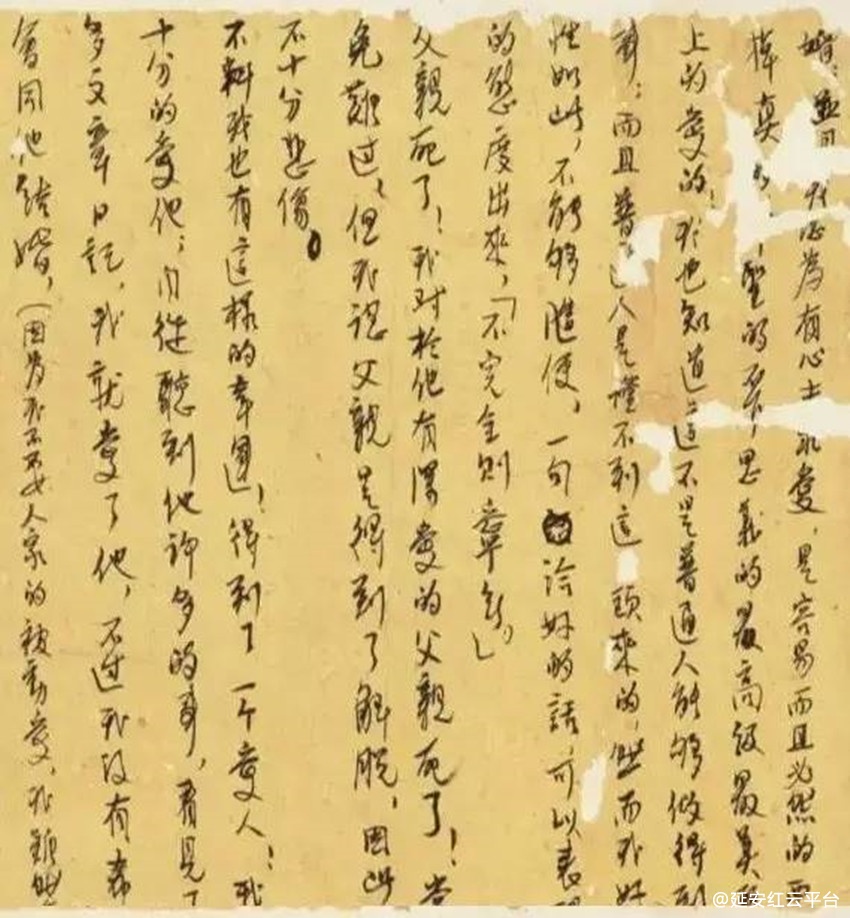 婚；並且 我認為有心去求愛，是容易而且必然的要
掉真 聖的不可思義的最高級最美
上的愛的！我也知道這不是普通人能夠做得到
事；而且普 人是懂不到這 頭來的，然而我好
性如此，不能夠隨便，一句恰好的話，可以表
的態度出來，「不完全則寧無」
父親死了！我对於他有深愛的父親死了！當
免難过，但我認父親是得到了解脫，因此
不十分悲傷。
不料我也有這樣的幸運！得到了一个愛人！我
十分的愛他；自從聽到他許多的事，看見了
多文章日記，我就愛了他，不过我没有希
會同他結婚，（因为我不要人家的被動愛，我雖然
@延安红云平台